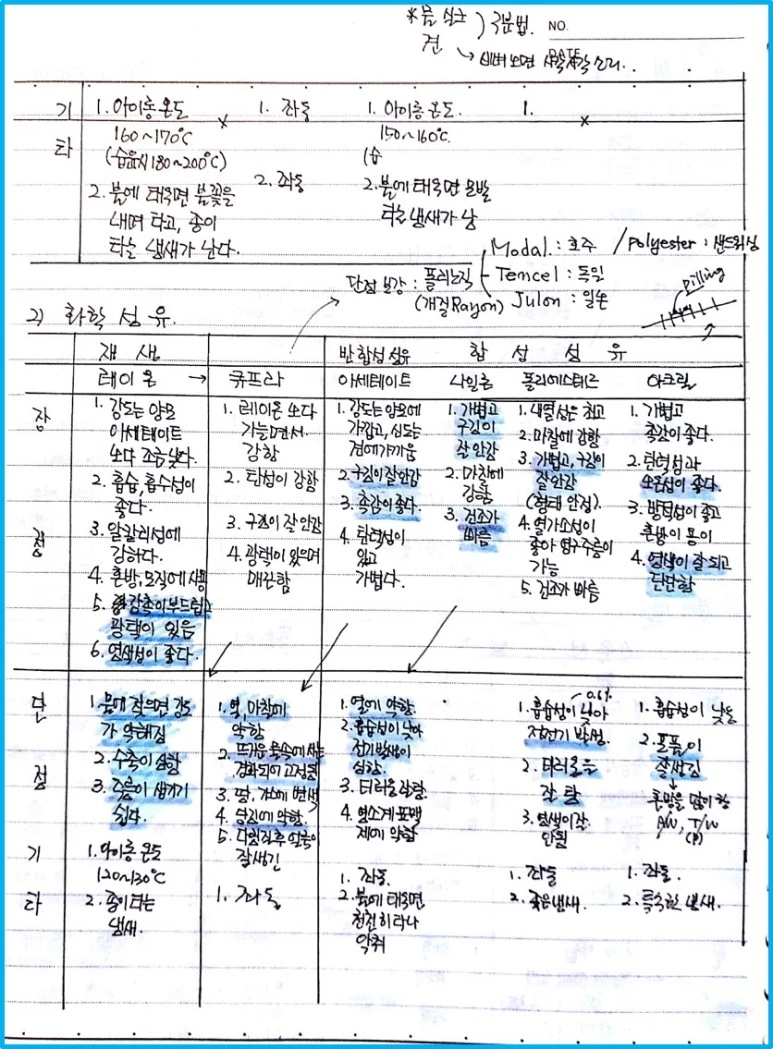 구분법. NO.
견 → 비벼보면 사각사각 소리..
DATE
기타
1. 아이롱온도
160~170℃
(습윤시 180~200℃)
2. 불에 태우면 불꽃을
내며 타고, 종이
타는 냄새가 난다.
1. 좌동
2. 좌동
1. 아이롱온도.
150~160℃
(습
2. 불에 태우면 모발
타는 냄새가 남
1.
단점 보강 : 폴리노직
(개질Rayon)
Modal : 호주
Tencel : 독일
Julon : 일본
/ Polyester :
pilling
2) 화학 섬유.
재생 반합성 섬유 합성섬유
레이온 → 큐프라 아세테이트 나일론 폴리에스테르 아크릴
장점
1. 강도는 양모
아세테이트
보다 조금 낮다.
2. 흡습, 흡수성이
좋다.
3. 알칼리성에
강하다.
4. 혼방, 모직에 사용
5. 감촉이 부드럽고
광택이 있음
6. 염색성이 좋다.
1. 레이온 보다
가늘면서
강함
2. 탄성이 강함
3. 구김이 잘 안감
4. 광택이 있으며
매끈함
1. 강도는 양모에
가깝고, 신도는
견에 가까움
2. 구김이 잘 안감
3. 촉감이 좋다.
4. 탄력성이
있고
가볍다.
1. 가볍고
구김이
잘 안감
2. 마찰에
강함
3. 건조가
빠름
1. 내열성은 최고
2. 마찰에 강함
3. 가볍고, 구김이
잘 안감
(형태 안정).
4. 열가소성이
좋아 영구주름이
가능
5. 건조가 빠름
1. 가볍고
촉감이 좋다.
2. 탄력성과
보온성이 좋다.
3. 방적성이 좋고
혼방이 용이
4. 염색이 잘 되고
단단함
단점
1. 물에 젖으면 강도
가 약해짐
2. 수축이 심함
3. 주름이 생기기
쉽다.
1. 열, 마찰에
약함
2. 뜨거운 물속에서는
경화되어 고정됨
3. 땀, 가스에 변색
4. 담김에 약함.
5. 다림질후
잘생긴
1. 열에 약함.
2. 흡습성이 낮아
전기발생이
심함.
3. 더러움 잘 탐.
4. 염소계 표백
제에 약함
0.6%
1. 흡습성이 낮아
정전기 발생.
2. 더러움을
잘 탐
3. 염색이 잘
안됨
1. 흡습성이 낮음
2. 보풀이
잘생김
↓
혼방을 많이 함
A/W, T/W
(P)
기타
1. 아이롱 온도
120~130℃
2. 종이 타는
냄새.
1. 좌동
1. 좌동.
2. 불에 태우면
천천히 타나
악취
1. 좌동
2. 좋은냄새.
1. 좌동.
2. 특숙한 냄새.